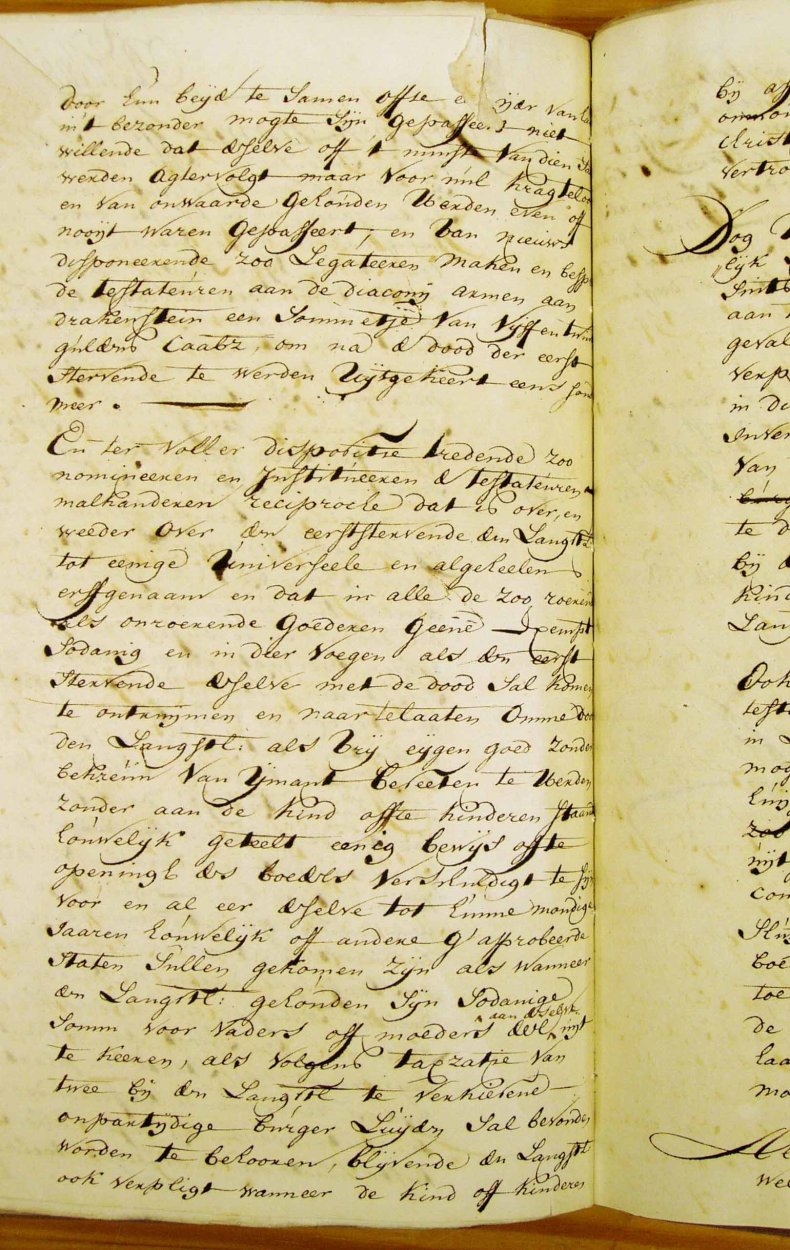 door hun beijde te samen ofte e ijder van
in't bezonder mogte sijn gepasseert niet
willende dat deselve off 't minst van dien
werden agtervolgt maar voor nul kragteloo
en van onwaarde gehouden werden even off
nooijt waren gepasseert, en van nieuws
disponeerende zoo legateeren maken en besp
de testateuren aan de diaconij armen aan
drakenstein een sommetje van vijffentwin
guldens Caabz, om na de dood der eerst
stervende te werden uijtgekeert eens sond
meer.
En ter voller dispositie tredende zoo
nomineeren en institueeren de testateuren
malkanderen reciprocle dat is over, en
weeder over den eerststervende den Langstl
tot eenige universeele en algeheelen
erffgenaam en dat in alle de zoo roeren
als onroerende goederen geene exempt
sodanig en in dier voegen als den eerst
stervende deselve met de dood sal komen
te ontruijmen en naartelaaten omme door
den Langstl: als vrij eijgen goed zonder
bekreun van ijmant beseeten te werden
zonder aan de kind offte kinderen staand
houwelijk geteelt eenig bewijs ofte
openinge des boedels verschuldigt te sijn
voor en al eer deselve tot hunne mondige
jaaren houwelijk off andere g'approbeerde
staten sullen gekomen zijn als wanneer
den Langstl: gehouden sijn sodanige
somm voor vaders off moeders deel aan deselve uijt
te keeren, als volgens taxzatie van
twee bij den Langstl te verkiesene
onpartijdige burger luijden sal bevonden
worden te behooren, blijvende den Langstl
ook verpligt wanneer de kind off kinderen
bij
Dog
lijk
aan
geval
verp
in
van
te
bij
kind
Lang
Ook
test
in
mog
zoo
uijt
con
boe
toe
de
laa
mo
wee